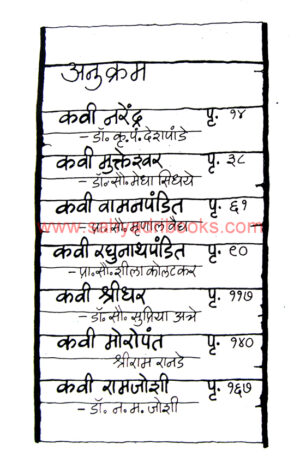 अनुक्रम
कवी नरेंद्र पृ. १४
- डॉ. कृ. पं. देशपांडे
कवी मुक्तेश्वर पृ. ३८
- डॉ. सौ. मेधा सिधये
कवी वामनपंडित पृ. ६१
www.sahyadribooks.com
- प्रा. सौ. मृणाल वैद्य
कवी रघुनाथपंडित पृ. ९०
- प्रा. सौ. शीला कोलटकर
कवी श्रीधर पृ. ११७
- डॉ. सौ. सुप्रिया अत्रे
कवी मोरोपंत पृ. १४०
श्रीराम रानडे
कवी रामजोशी पृ. १६७
- डॉ. न. म. जोशी